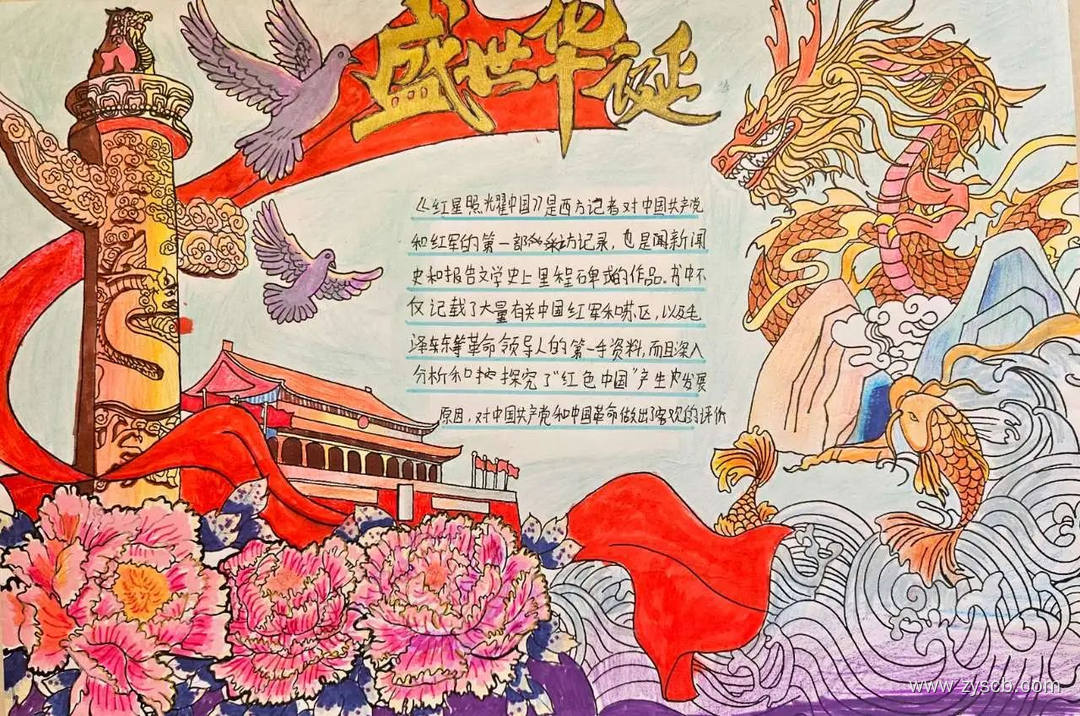 盛世华诞
《红星照光耀中国》是西方记者对中国共产党
和红军的第一部采访记录，也是闻新闻
史和报告文学史上里程碑或的作品。书中不
仅记载了大量有关中国红军和苏区，以及毛
泽东等革命领导人的第一手资料，而且深入
分析和探究了"红色中国"产生发展
原因，对中国共产党和中国革命做出了客观的评价
www.zyscb.com